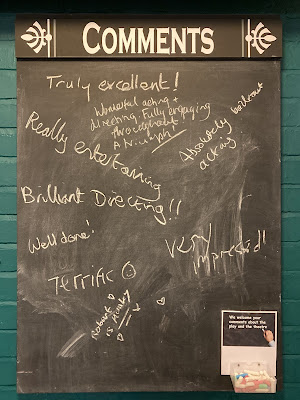 COMMENTS
Truly excellent!
Wonderful acting +
directing. Fully engaging
throughout!
A Triumph!
Really entertaining
Absolutely
acting
Brilliant Directing!!
Well done!
Very
Terrific
Robert
is Hunky
We welcome your
comments about the
play and the theatre